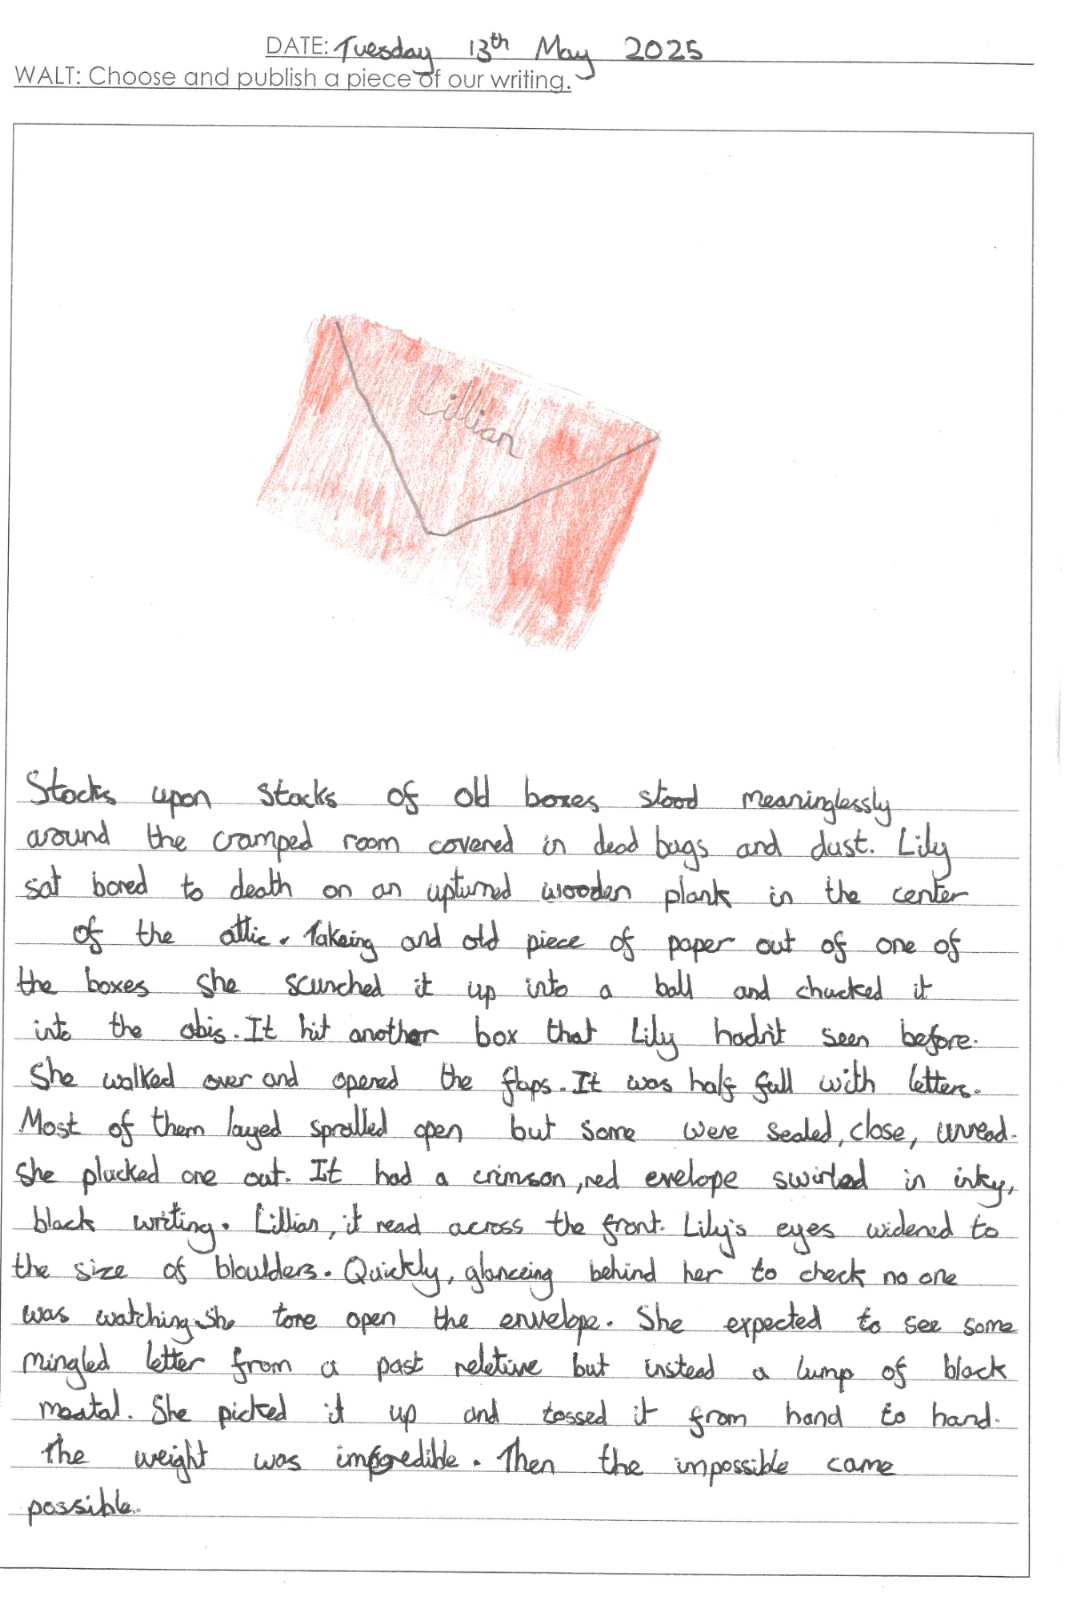 DATE: Tuesday 13th May 2025
WALT: Choose and publish a piece of our writing.
Lillian
Stacks upon stacks of old boxes stood meaninglessly
around the cramped room covered in dead bugs and dust. Lily
sat bored to death on an upturned wooden plank in the center
of the attic. Takeing and old piece of paper out of one of
the boxes she scunched it up into a ball and chucked it
into the abis. It hit another box that Lily hadn't seen before.
She walked over and opened the flaps. It was half full with letters.
Most of them layed spralled open but some were sealed, close, unread.
She plucked one out. It had a crimson, red envelope swirled in inky,
black writing. Lillian, it read across the front. Lily's eyes widened to
the size of bloulders. Quickly, glanceing behind her to check no one
was watching she tore open the envelope. She expected to see some
mingled letter from a past reletive but instead a lump of black
meatal. She picked it up and tossed it from hand to hand.
The weight was incredible. Then the impossible came
possible.